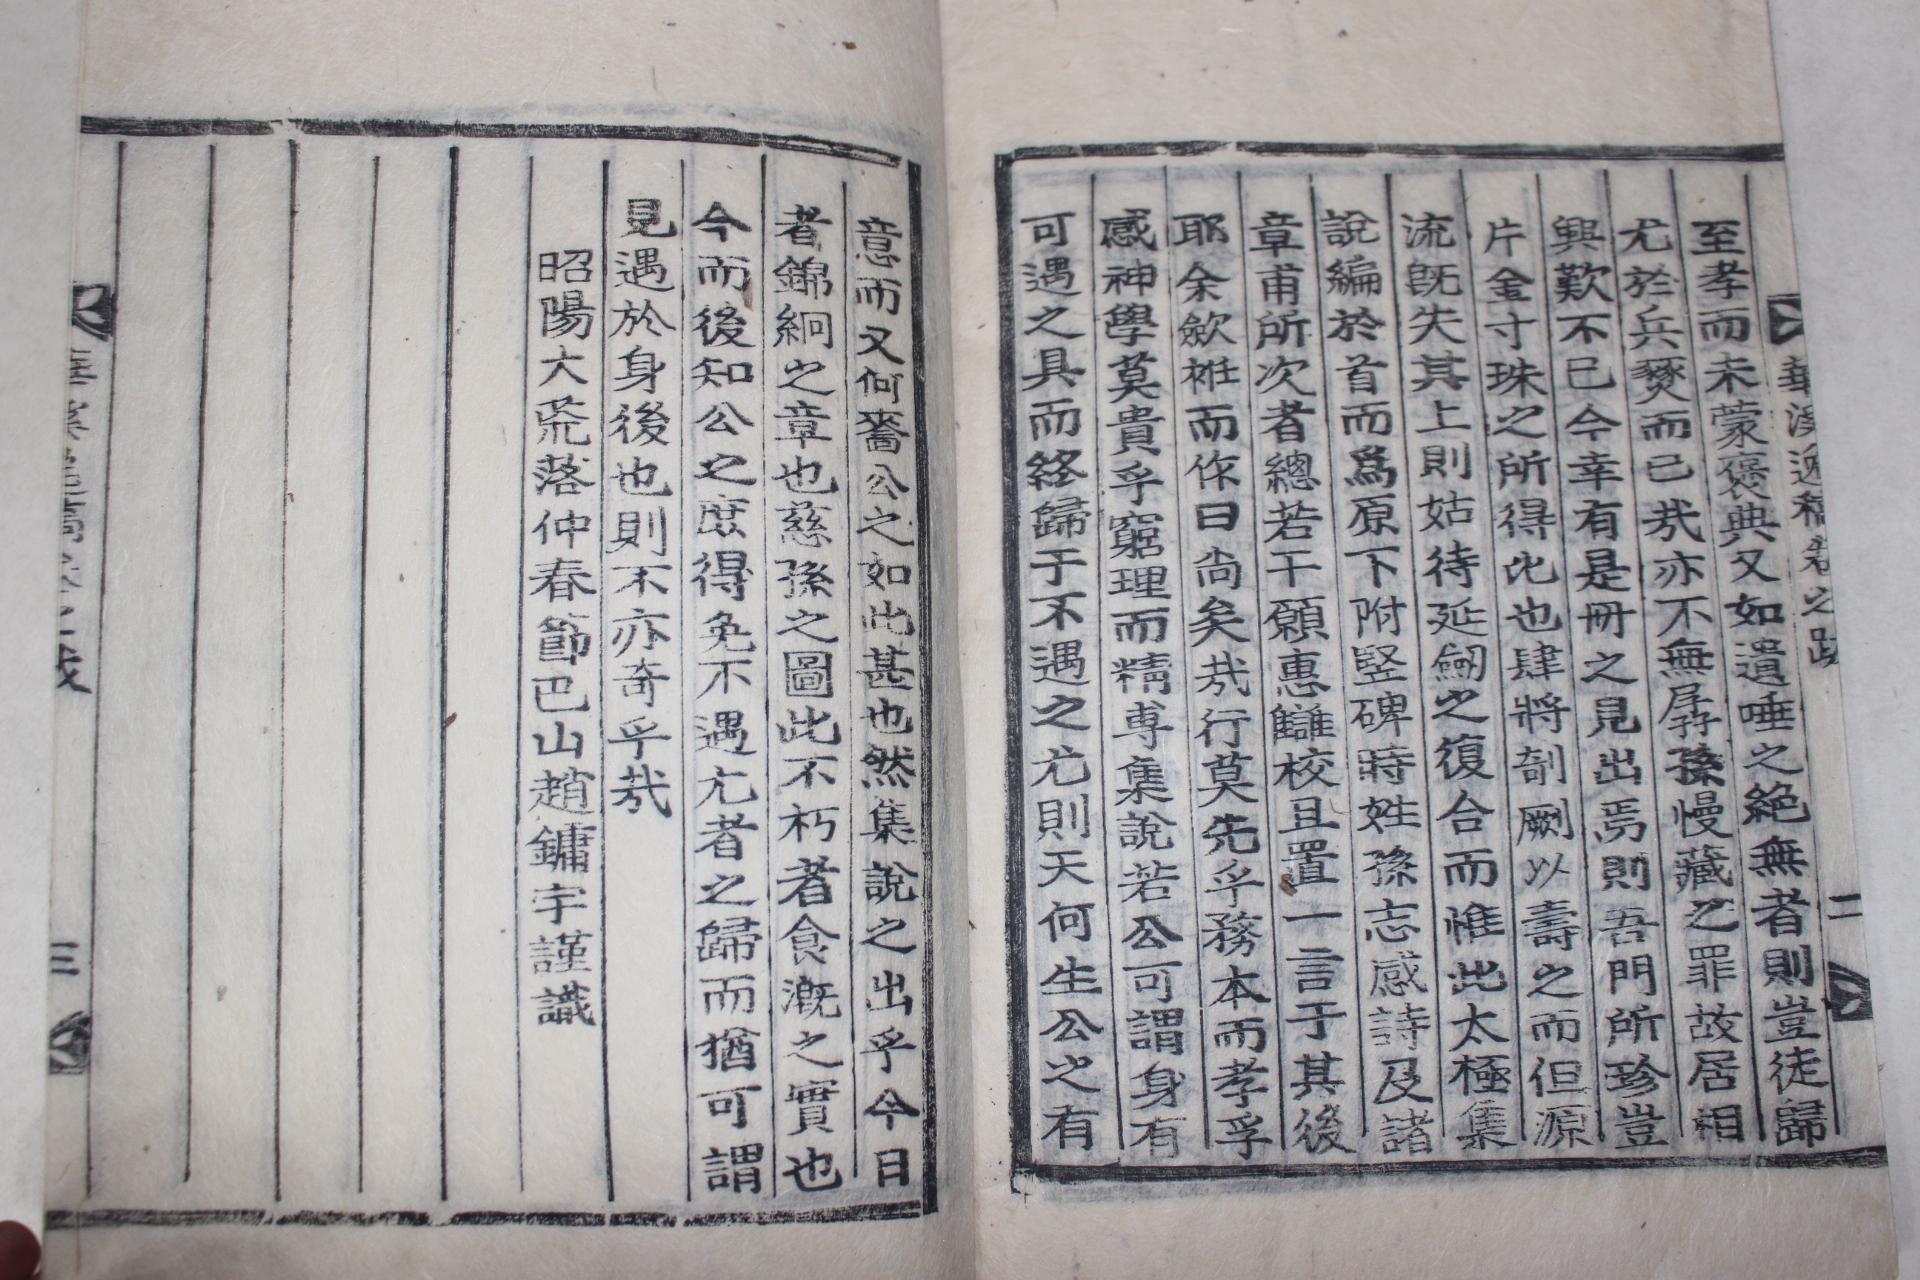 華溪逸稿卷之跋 二
至孝而未蒙褒典又如遺唾之絶無者則豈徒歸
尤於兵燹而已哉亦不無孱孫慢藏之罪故居相
興歎不已今幸有是冊之見出焉則吾門所珍豈
片金寸珠之所得比也肆將剞劂以壽之而但源
流旣失其上則姑待延劒之復合而惟此太極集
說編於首而爲原下附竪碑時姓孫志感詩及諸
章甫所次者總若干願惠讎校且置一言于其後
耶余歛袵而作曰尙矣哉行莫先乎務本而孝孚
感神學莫貴乎窮理而精專集說若公可謂身有
可遇之具而終歸于不遇之尤則天何生公之有
意而又何嗇公之如此甚也然集說之出乎今日
者錦絅之章也慈孫之圖此不朽者食漑之實也
今而後知公之庶得免不遇尤者之歸而猶可謂
見遇於身後也則不亦奇乎哉
昭陽大荒落仲春節巴山趙鏞宇謹識
三